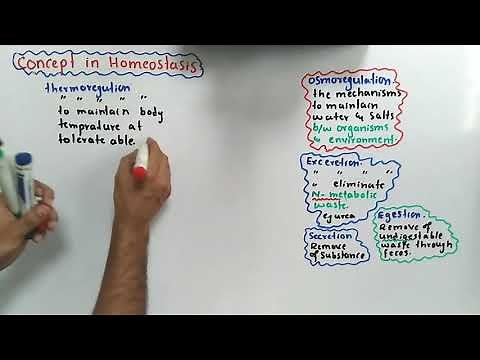 Concept in Homeostasis
thermoregution
" " " " "
to maintain body
temprature at
tolerate able
Osmoregulation
the mechanisms
to maintain
water & Salts
b/w organisms
& environment.
Exceretion.
" " " "
" eliminate
N- metabolic
waste.
eg urea
Secretion
Remove
of Substance
Egestion.
Remove of
undigestable
waste through
feces.